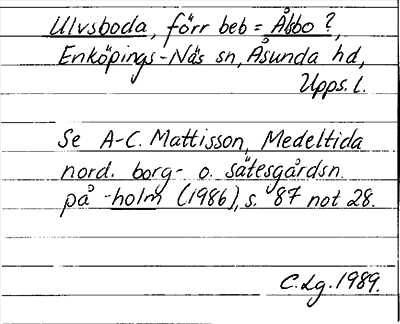 Ulvsboda, förr beb = Åsbo ?,
Enköpings-Näs sn, Åsunda hd,
Upps. l.
Se A-C. Mattisson, Medeltida
nord. borg- o. sätesgårdsn.
på -holm (1986), s. 87 not 28.
C.Lg. 1989.